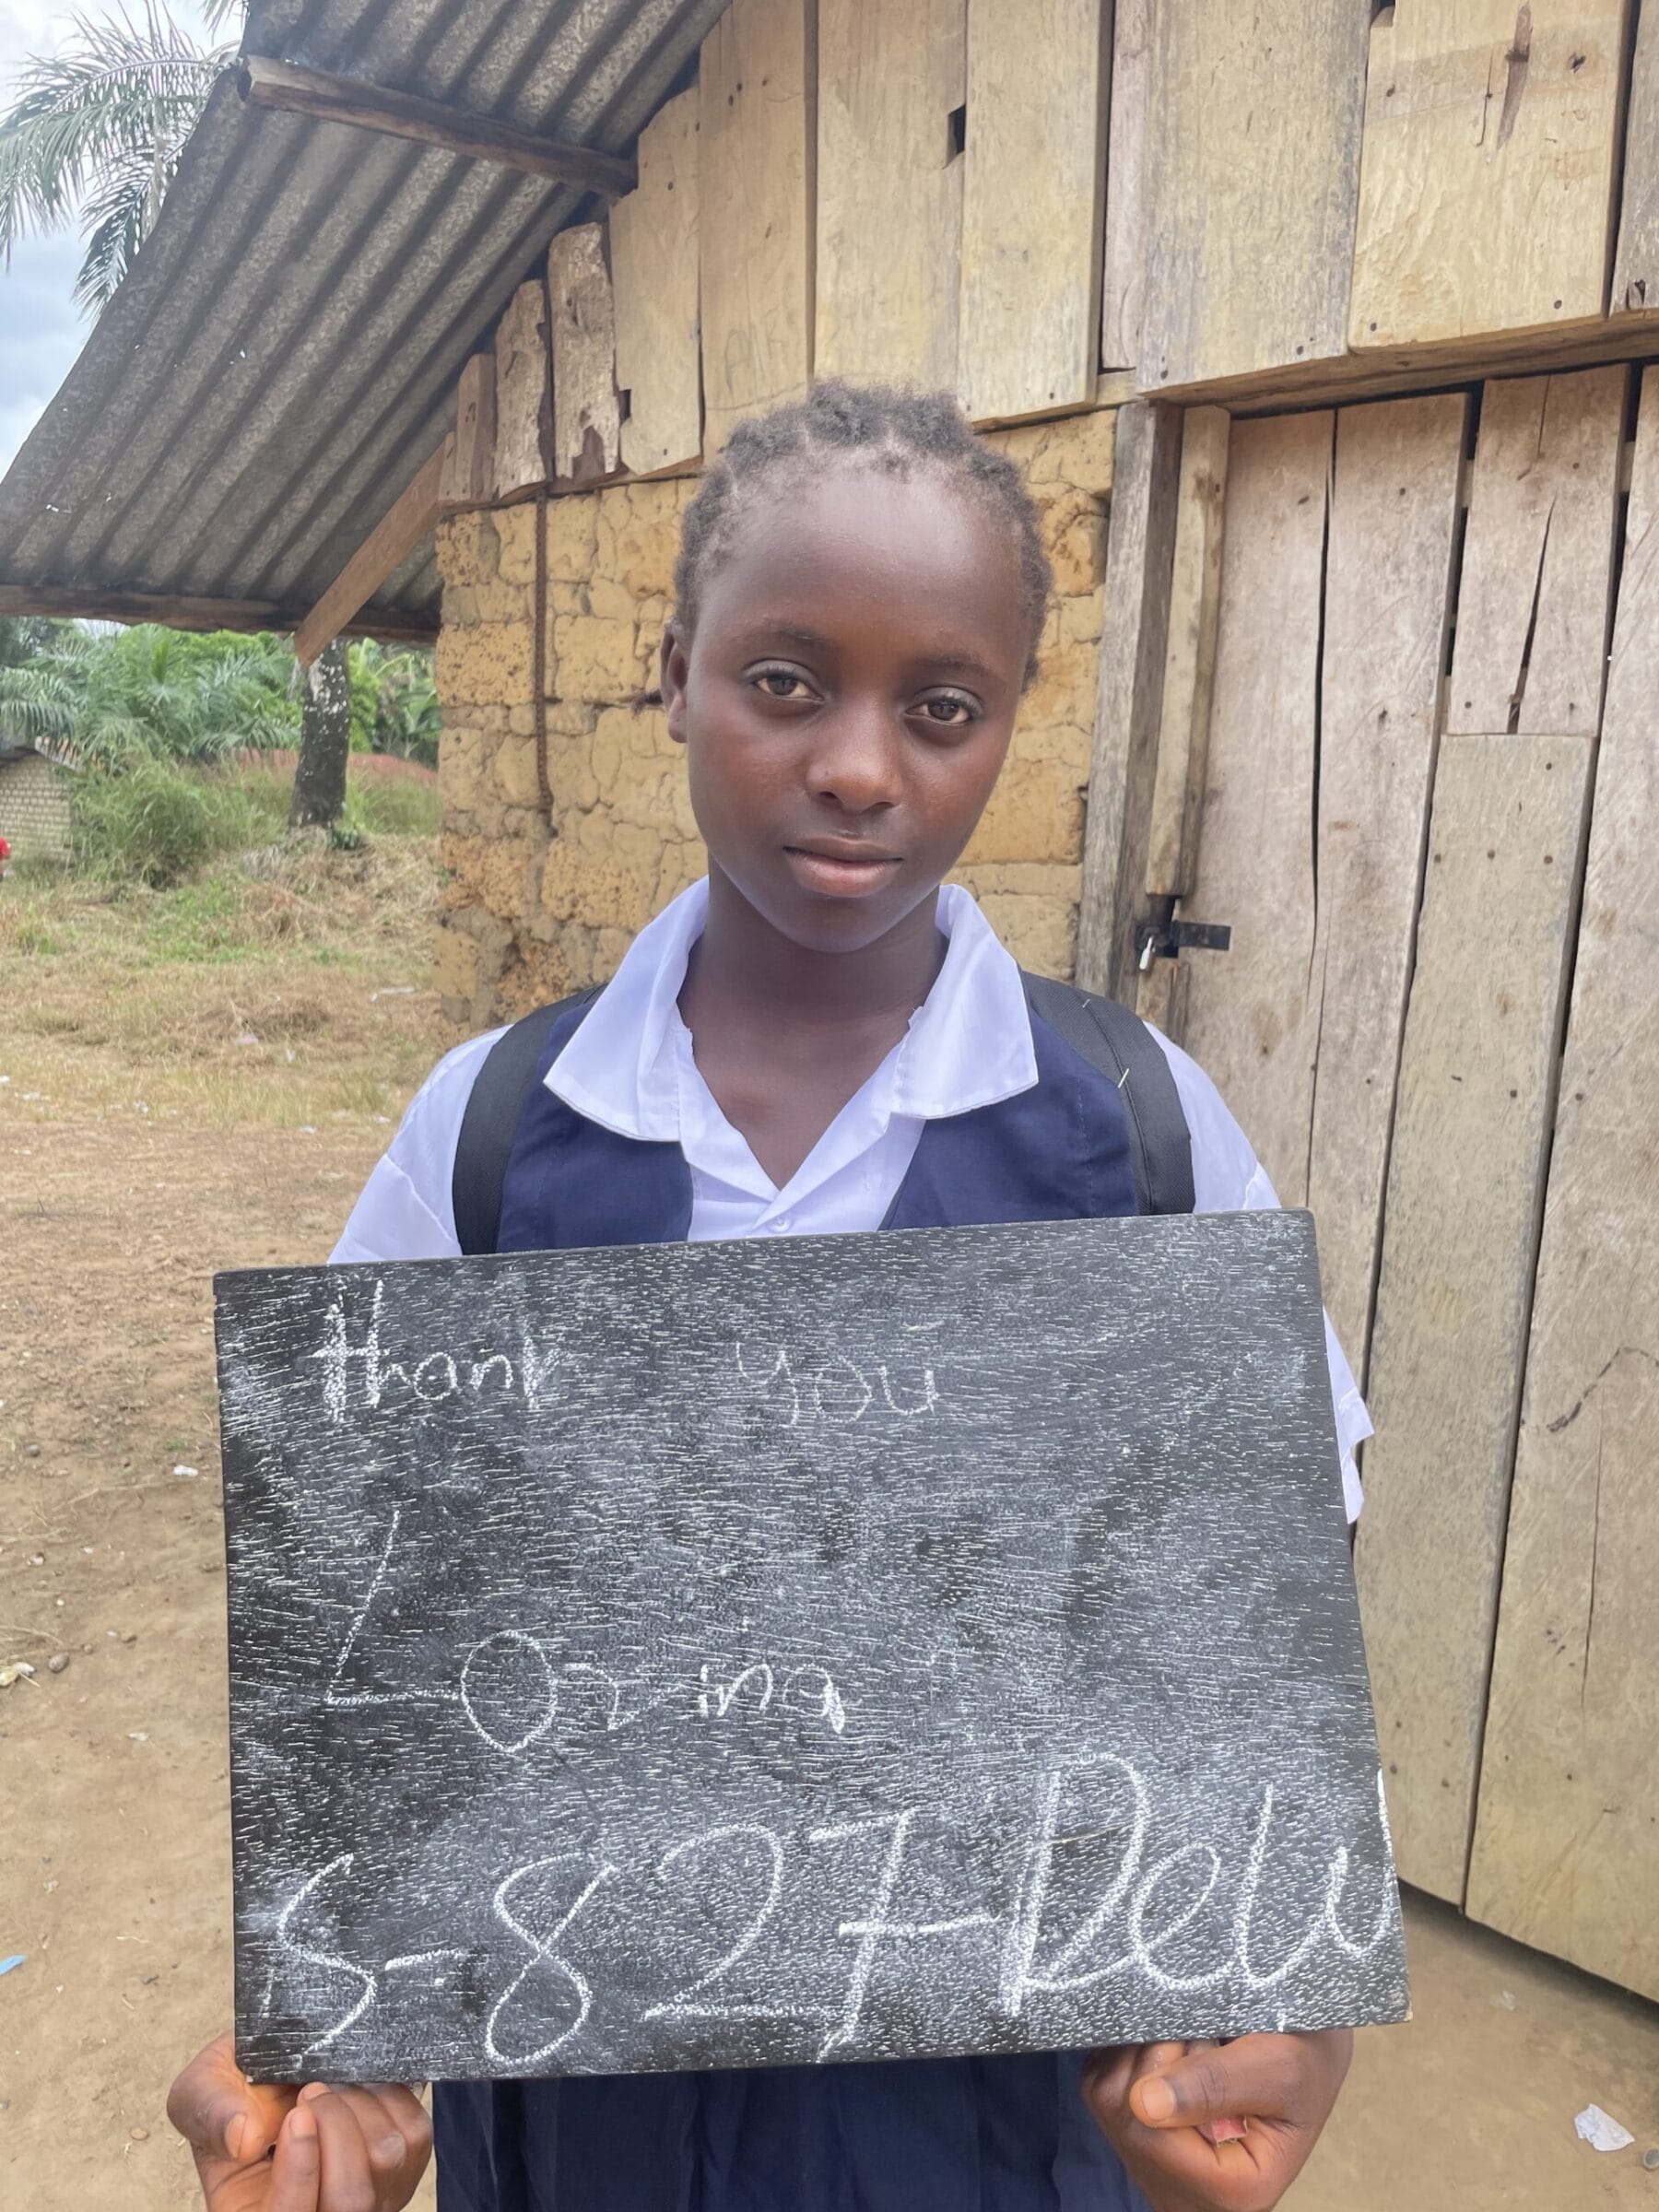 Thank you
Lorina
S-827-Delu